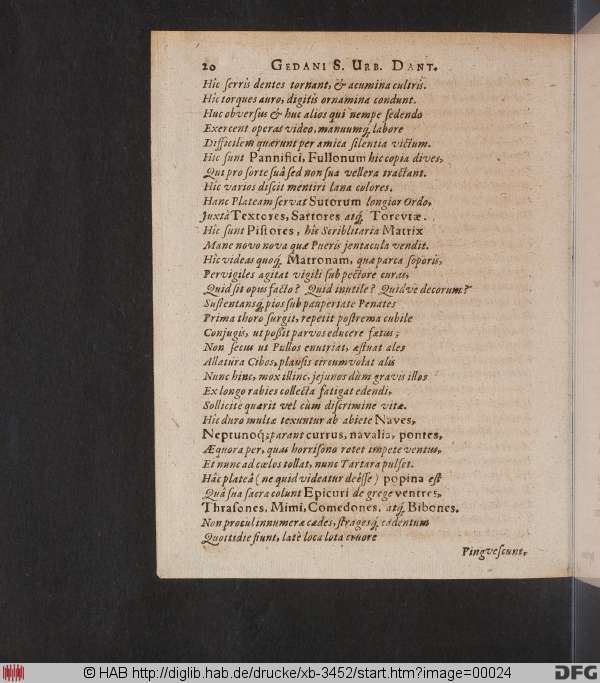 20 GEDANI S. URB. DANT.
Hic serris dentes tornant, & acumina cultris.
Hic torques auro, digitis ornamina condunt.
Huc obversus & huc alios qui nempe sedendo
Exercent operas video, manuumq́; labore
Difficilem quærunt per amica silentia victum.
Hic sunt Pannifici, Fullonum hic copia dives,
Qui pro sorte suâ sed non sua vellera tractant.
Hic varios discit mentiri lana colores.
Hanc Plateam servat Sutorum longior Ordo,
Juxtà Textores, Sartores atq́; Torevtæ.
Hic sunt Pistores, hic Scriblitaria Matrix
Mane novo nova quæ Pueris jentacula vendit.
Hic videas quoq́; Matronam, quæ parca soporis,
Pervigiles agitat vigili sub pectore curas,
Quid sit opus facto? Quid inutile? Quidve decorum?
Sustentansq́; pios sub paupertate Penates
Prima thoro surgit, repetit postrema cubile
Conjugis, ut possit parvos educere fœtus;
Non secus ut Pullos enutriat, æstuat ales
Allatura Cibos, plausis circumvolat alis
Nunc hinc, mox illinc, jejunos dùm gravis illos
Ex longo rabies collecta fatigat edendi,
Sollicite quærit vel cùm discrimine vitæ.
Hic duro multæ texuntur ab abiete Naves,
Neptunoq́; parant currus, navalia, pontes,
Æquora per, quas horrisono rotet impete ventus,
Et nunc ad cœlos tollat, nunc Tartara pulset.
Hâc plateâ (ne quid videatur deésse) popina est
Quâ sua sacra colunt Epicuri de grege ventres,
Thrasones, Mimi, Comedones, atq́; Bibones.
Non procul innumeræ cædes, stragesq́; cadentum
Quottidie fiunt, latè loca lota cruore
Pingvescunt,
© HAB http://diglib.hab.de/drucke/xb-3452/start.htm?image=00024
DFG